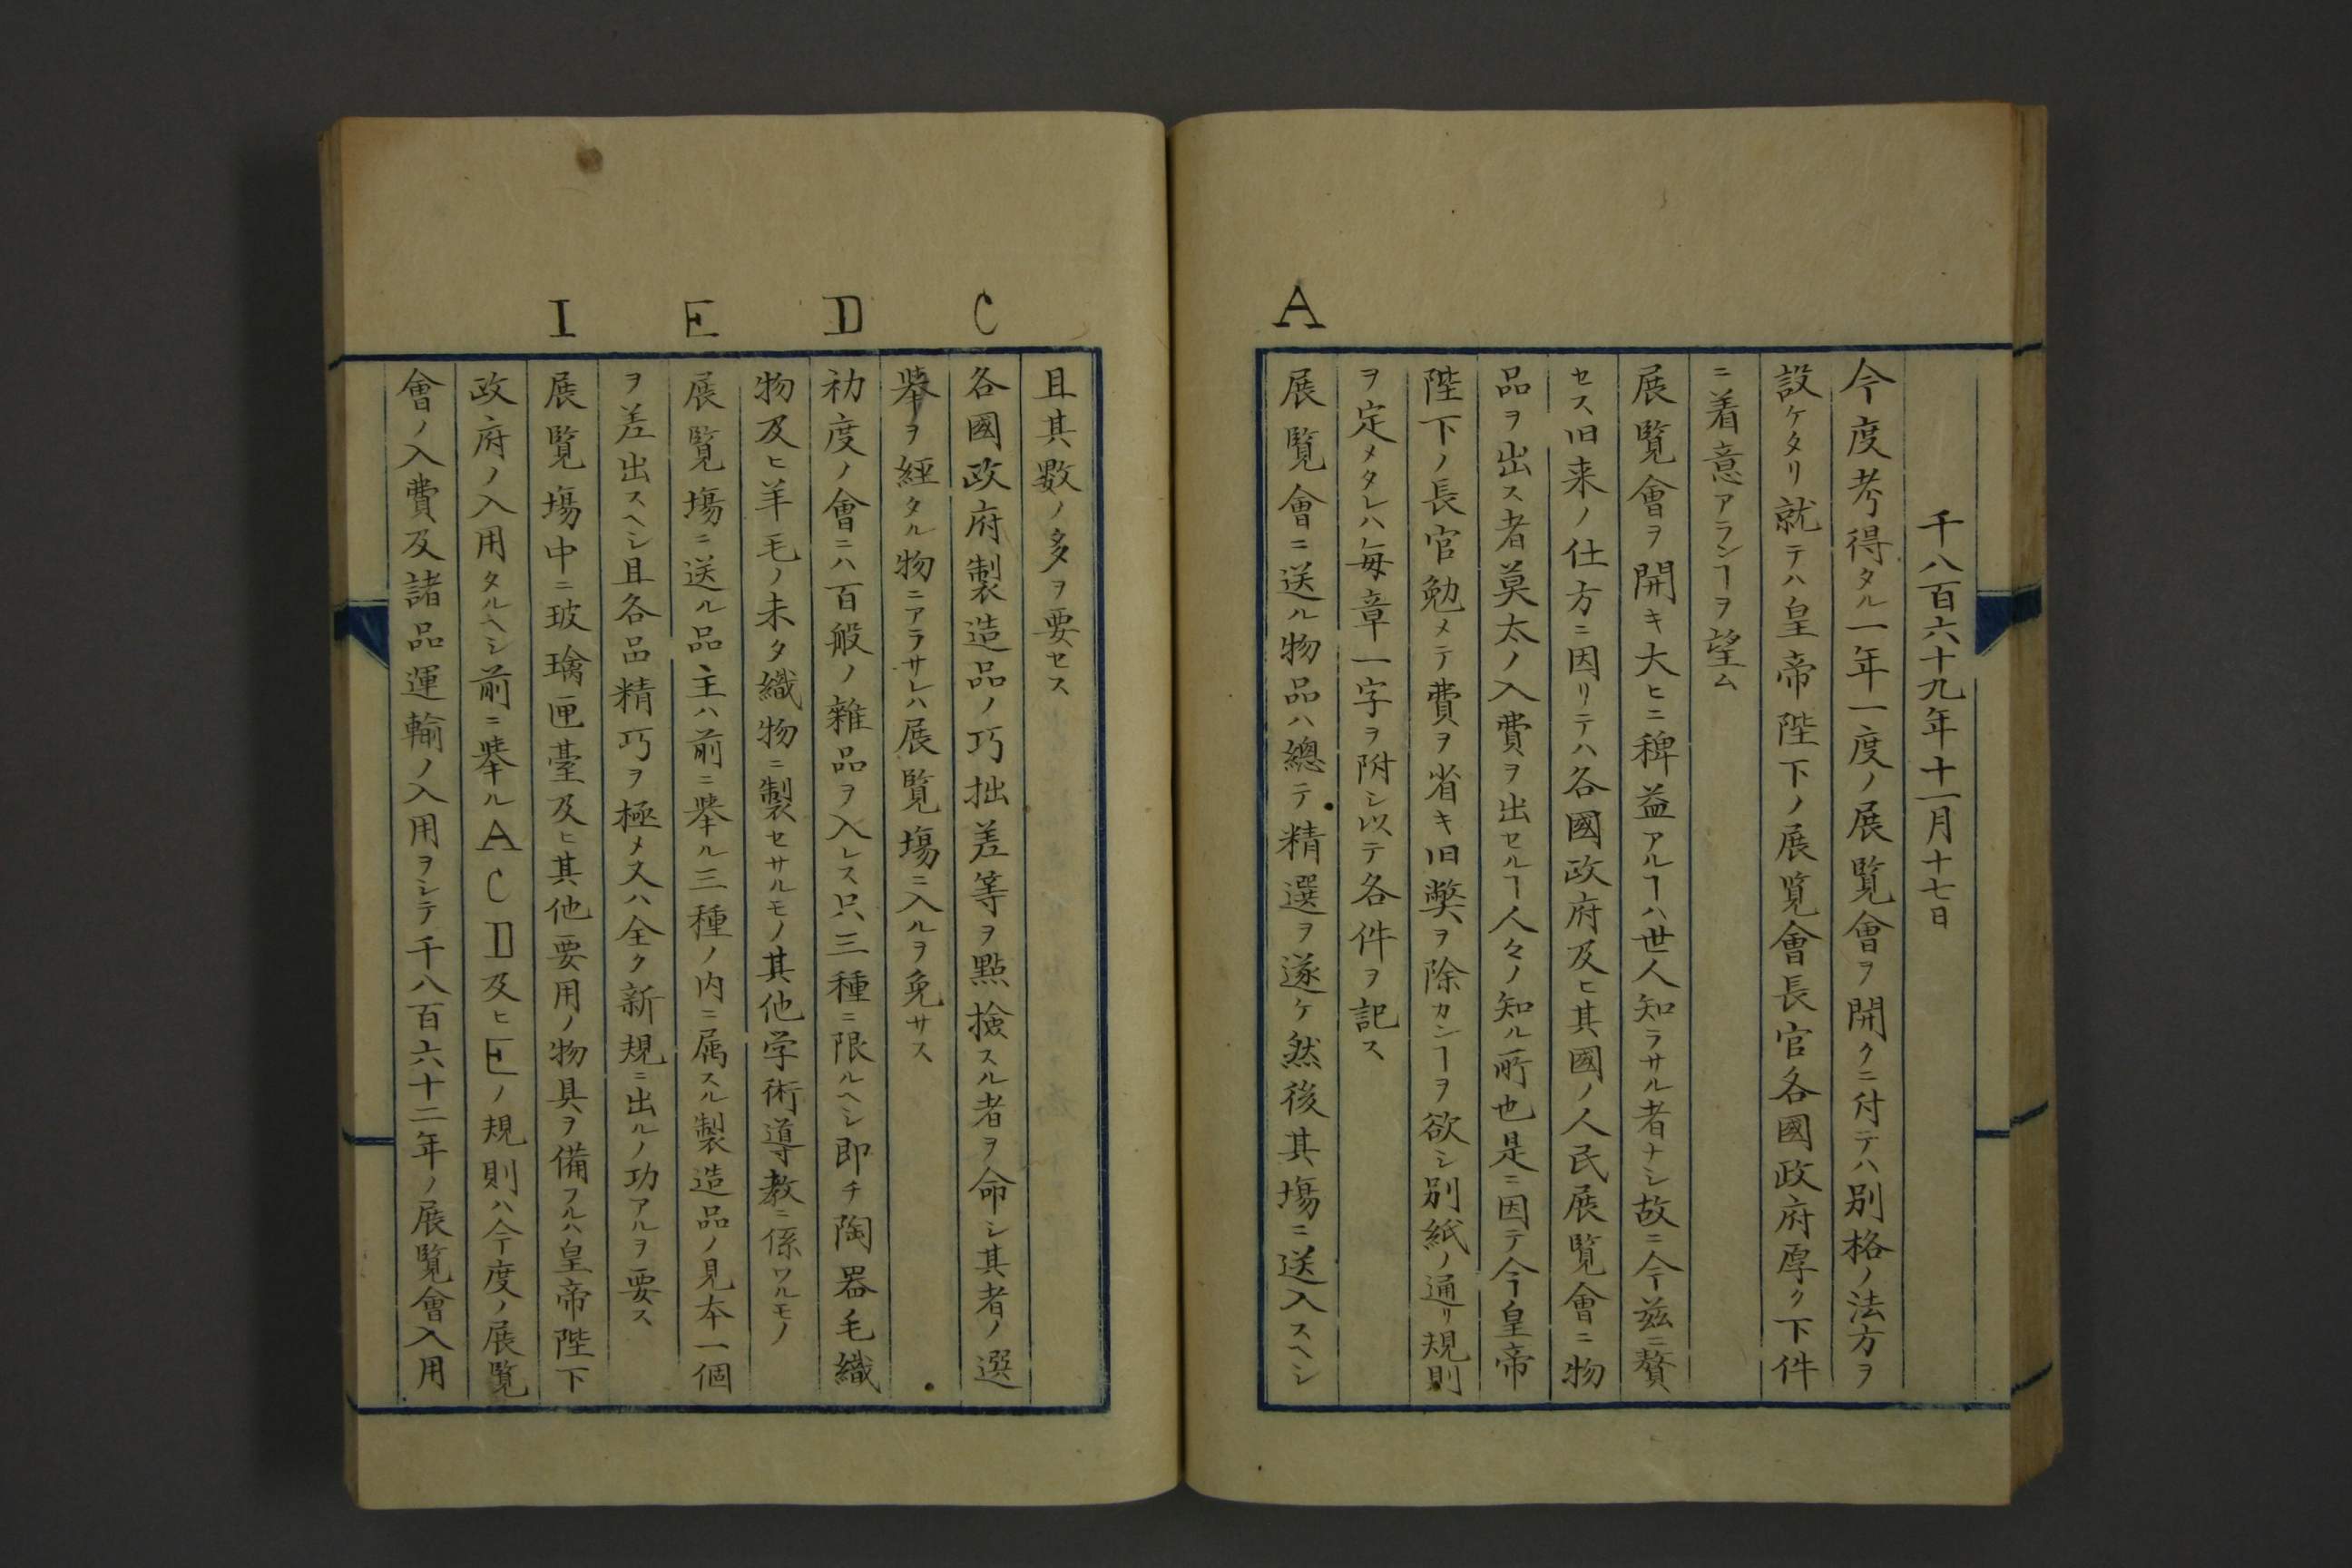 千八百六十九年十一月十七日
今度考得タル一年一度ノ展覧會ヲ開クニ付テハ別格ノ法方ヲ
設ケタリ就テハ皇帝陛下ノ展覧會長官各國政府厚ク下件
ニ着意アランヿヲ望ム
展覧會ヲ開キ大ヒニ稗益アルヿハ世人知ラサル者ナシ故ニ今玆ニ贅
セス旧来ノ仕方ニ因リテハ各國政府及ヒ其國ノ人民展覧會ニ物
品ヲ出ス者莫太ノ入費ヲ出セルヿ人々ノ知ル所也是ニ因テ今皇帝
陛下ノ長官勉メテ費ヲ省キ旧弊ヲ除カンヿヲ欲シ別紙ノ通リ規則
ヲ定メタレハ毎章一字ヲ附シ以テ各件ヲ記ス
A
展覧會ニ送ル物品ハ總テ精選ヲ遂ケ然後其場ニ送入スヘシ
且其數ノ多ヲ要セス
C
各國政府製造品ノ巧拙差等ヲ點撿スル者ヲ命シ其者ノ選
擧ヲ経タル物ニアラサレハ展覧場ニ入ルヲ免サス
D
初度ノ會ニハ百般ノ雜品ヲ入レス只三種ニ限ルヘシ即チ陶器毛織
物及ヒ羊毛ノ未タ織物ニ製セサルモノ其他学術導教ニ係ワルモノ
E
展覧場ニ送ル品主ハ前ニ擧ル三種ノ内ニ属スル製造品ノ見本一個
ヲ差出スヘシ且各品精巧ヲ極メ又ハ全ク新規ニ出ルノ功アルヲ要ス
I
展覧場中ニ玻璃匣臺及ヒ其他要用ノ物具ヲ備フルハ皇帝陛下
政府ノ入用タルヘシ前ニ擧ルACD及ヒEノ規則ハ今度ノ展覧
會ノ入費及諸品運輸ノ入用ヲシテ千八百六十二年ノ展覧會入用